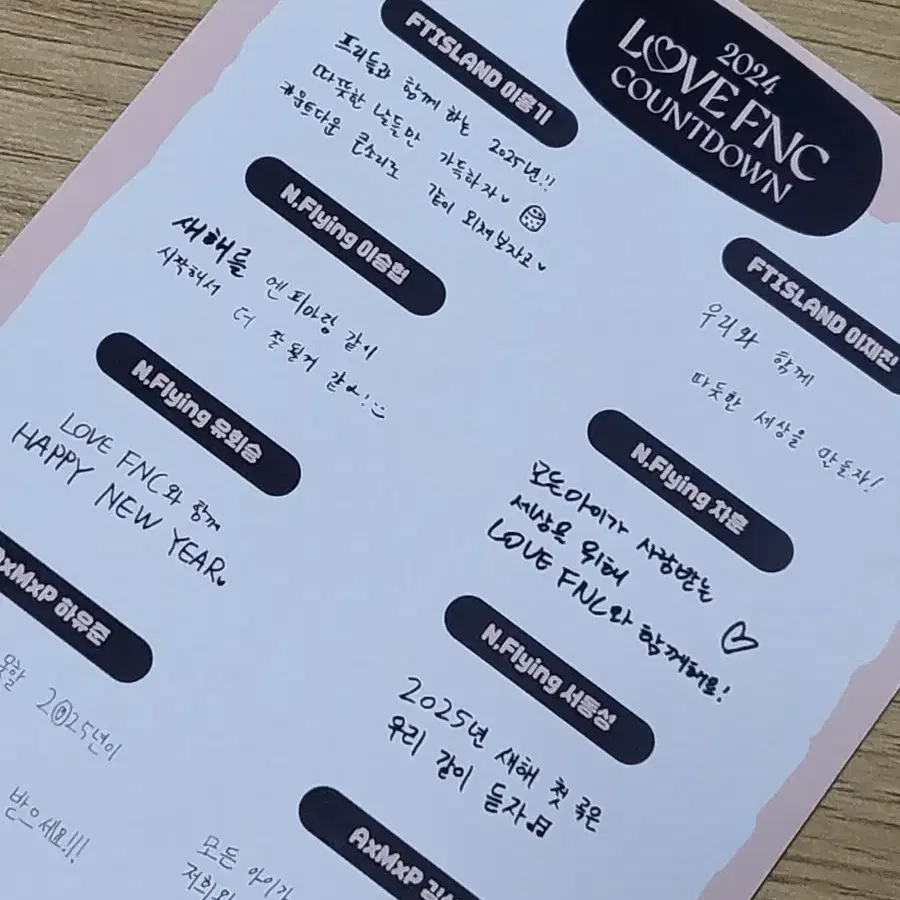 2024
LOVE FNC
COUNTDOWN
FTISLAND 이홍기
프리들과 함께 하는 2025년!!
따뜻한 날들만 가득하자
카운트다운 큰소리로 같이 외쳐보자고
FTISLAND 이재진
우리와 함께
따듯한 세상을 만들자!
N.Flying 이승협
새해를 엔피아랑 같이
시작해서 더 잘 될거 같아!
N.Flying 차훈
모든아이가 사랑받는
세상을 위해
LOVE FNC와 함께해요!
N.Flying 유회승
LOVE FNC와 함께
HAPPY NEW YEAR
N.Flying 서동성
2025년 새해 첫 곡은
우리 같이 듣자
AxMxP 하유준
2025년이
받으세요!!!
AxMxP
모든 아이가
저희와